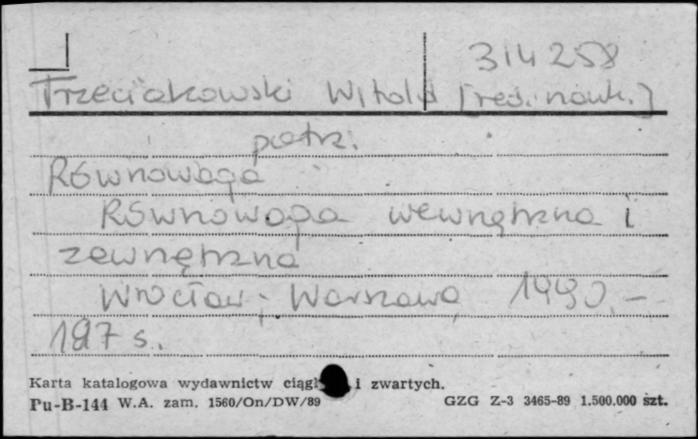 314258
Trzeciakowski Witold [red. nauk.]
patrz:
Równowaga
Równowaga wewnętrzna i
zewnętrzna
Wrocław; Warszawa 1990. —
187 s.
Karta katalogowa wydawnictw ciągł i zwartych.
Pu-B-144 W.A. zam. 1560/On/DW/89 GZG Z-3 3465-89 1.500.000 szt.